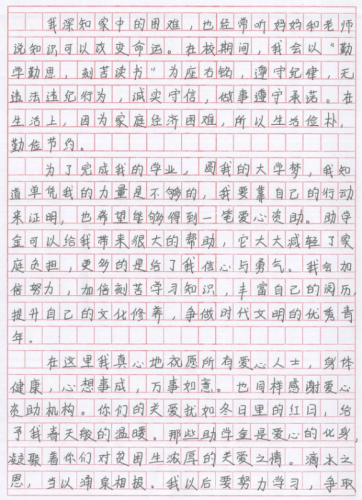 我深知家中的困难，也经常听妈妈和老师
说知识可以改变命运。在校期间，我会以“勤
学勤思，刻苦读书”为座右铭，遵守纪律，无
违法违纪行为，诚实守信，做事遵守承诺。在
生活上，因为家庭经济困难，所以生活俭朴，
勤俭节约。
为了完成我的学业，圆我的大学梦，我知
道单凭我的力量是不够的，我要靠自己的行动
来证明，也希望能够得到一笔爱心资助。助学
金可以给我带来很大的帮助，它大大减轻了家
庭负担，更多的是给了我信心与勇气。我会加
倍努力，加倍刻苦学习知识，丰富自己的阅历，
提升自己的文化修养，争做时代文明的优秀青
年。
在这里我真心地祝愿所有爱心人士，身体
健康，心想事成，万事如意。也同样感谢爱心
资助机构。你们的关爱就如冬日里的红日，给
予我春天般的温暖。那些助学金是爱心的化身，
凝聚着你们对贫困生浓厚的关爱之情。滴水之
恩，当以涌泉相报。我以后要努力学习，争取